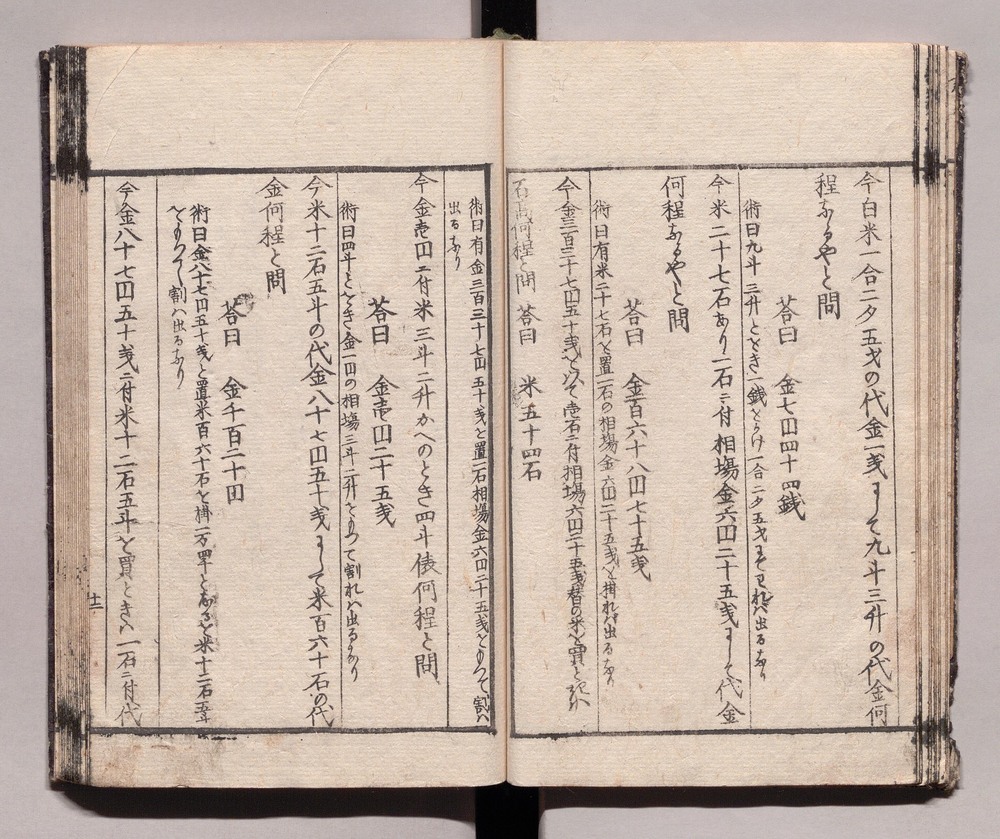 今白米一合二夕五才の代金一戋ニして九斗三升の代金何
程なるやと問
答曰 金七円四十四銭
術曰九斗三升ととき一銭をかけ一合二夕五才にてわれハ出るなり
今米二十七石あり一石ニ付相場金六円二十五戋ニして代金
何程なるやと問
答曰 金百六十八円七十五戋
術曰有米二十七石と置一石の相場金六円二十五戋を掛れハ出るなり
今金三百三十七円五十戋を以て壱石ニ付相場六円二十五戋替の米を買ときハ
石高何程と問 答曰 米五十四石
術曰有金三百三十七円五十戋と置一石相場金六円二十五戋をもつて割ハ
出るなり
今金壱円ニ付米三斗二升かへのとき四斗俵何程と問
答曰 金壱円二十五戋
術曰四斗ととき金一円の相場三斗二升をもつて割れハ出るなり
今米十二石五斗の代金八十七円五十戋ニして米百六十石の代
金何程と問
答曰 金千百二十円
術曰金八十七円五十戋と置米百六十石を掛一万四千となるを米十二石五斗
をもつて割ハ出るなり
今金八十七円五十戋ニ付米十二石五斗を買ときハ一石ニ付代
十二